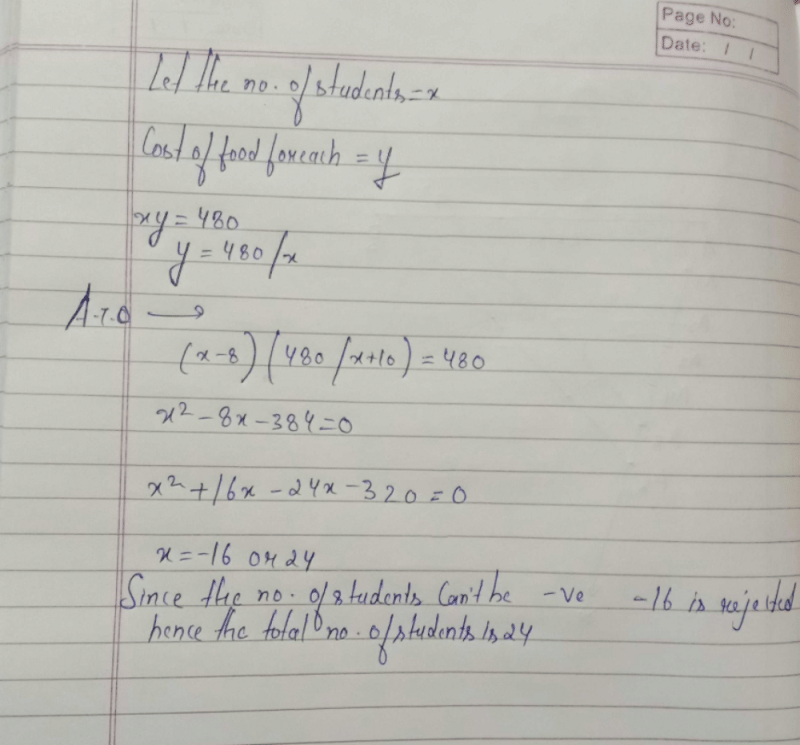 Page No:
Date: / /
Let the no. of students = x
Cost of food for each = y
xy = 480
y = 480/x
A.T.Q →
(x-8) (480/x+10) = 480
x² - 8x - 384 = 0
x² + 16x - 24x - 320 = 0
x = -16 or 24
Since the no. of students can't be -ve -16 is rejected
hence the total no. of students is 24